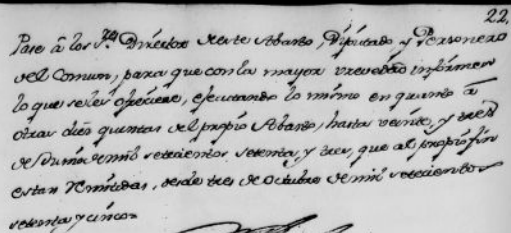 22.
Pase â los S.res Director de este Abasto, Diputado y Personero
del Comun, para que con la mayor brevedad informen
lo que se les ofreciere, ejecutando lo mismo en quanto â
otras diez quentas del propio Abasto, hasta veinte, y tres
de Junio de mil setecientos setenta, y tres, que al propio fin
estan remitidas, desde tres de Octubre de mil setecientos
setenta y cinco=